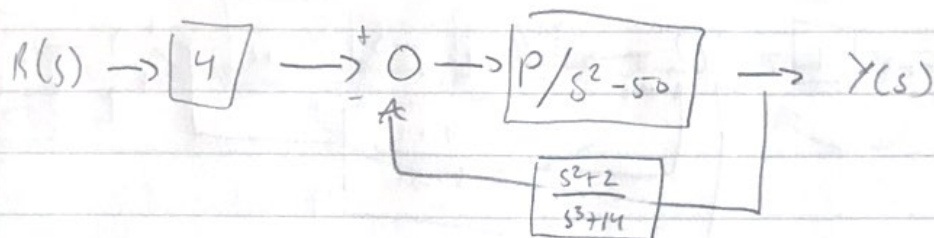 R(s) → 4 → + O → P/s²-50 → Y(s)
-
s²+2
s³+14